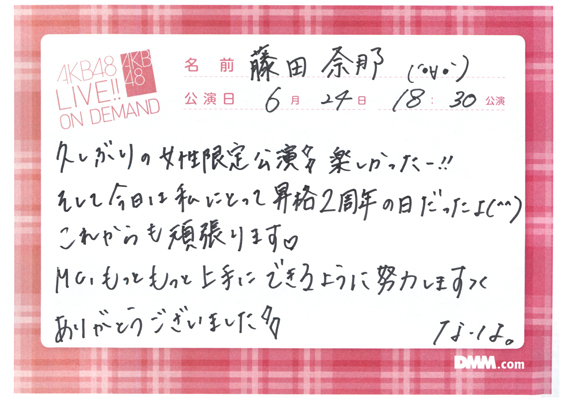 AKB48
LIVE!!
ON DEMAND
AKB
48
名前 藤田奈那 (°∀°)
公演日 6月24日 18:30公演
久しぶりの女性限定公演 楽しかったー!!
そして今日は私にとって昇格2周年の日だったよ(^^)
これからも頑張ります♡
MC、もっともっと上手にできるように努力します
ありがとうございました
なーな。
DMM.com